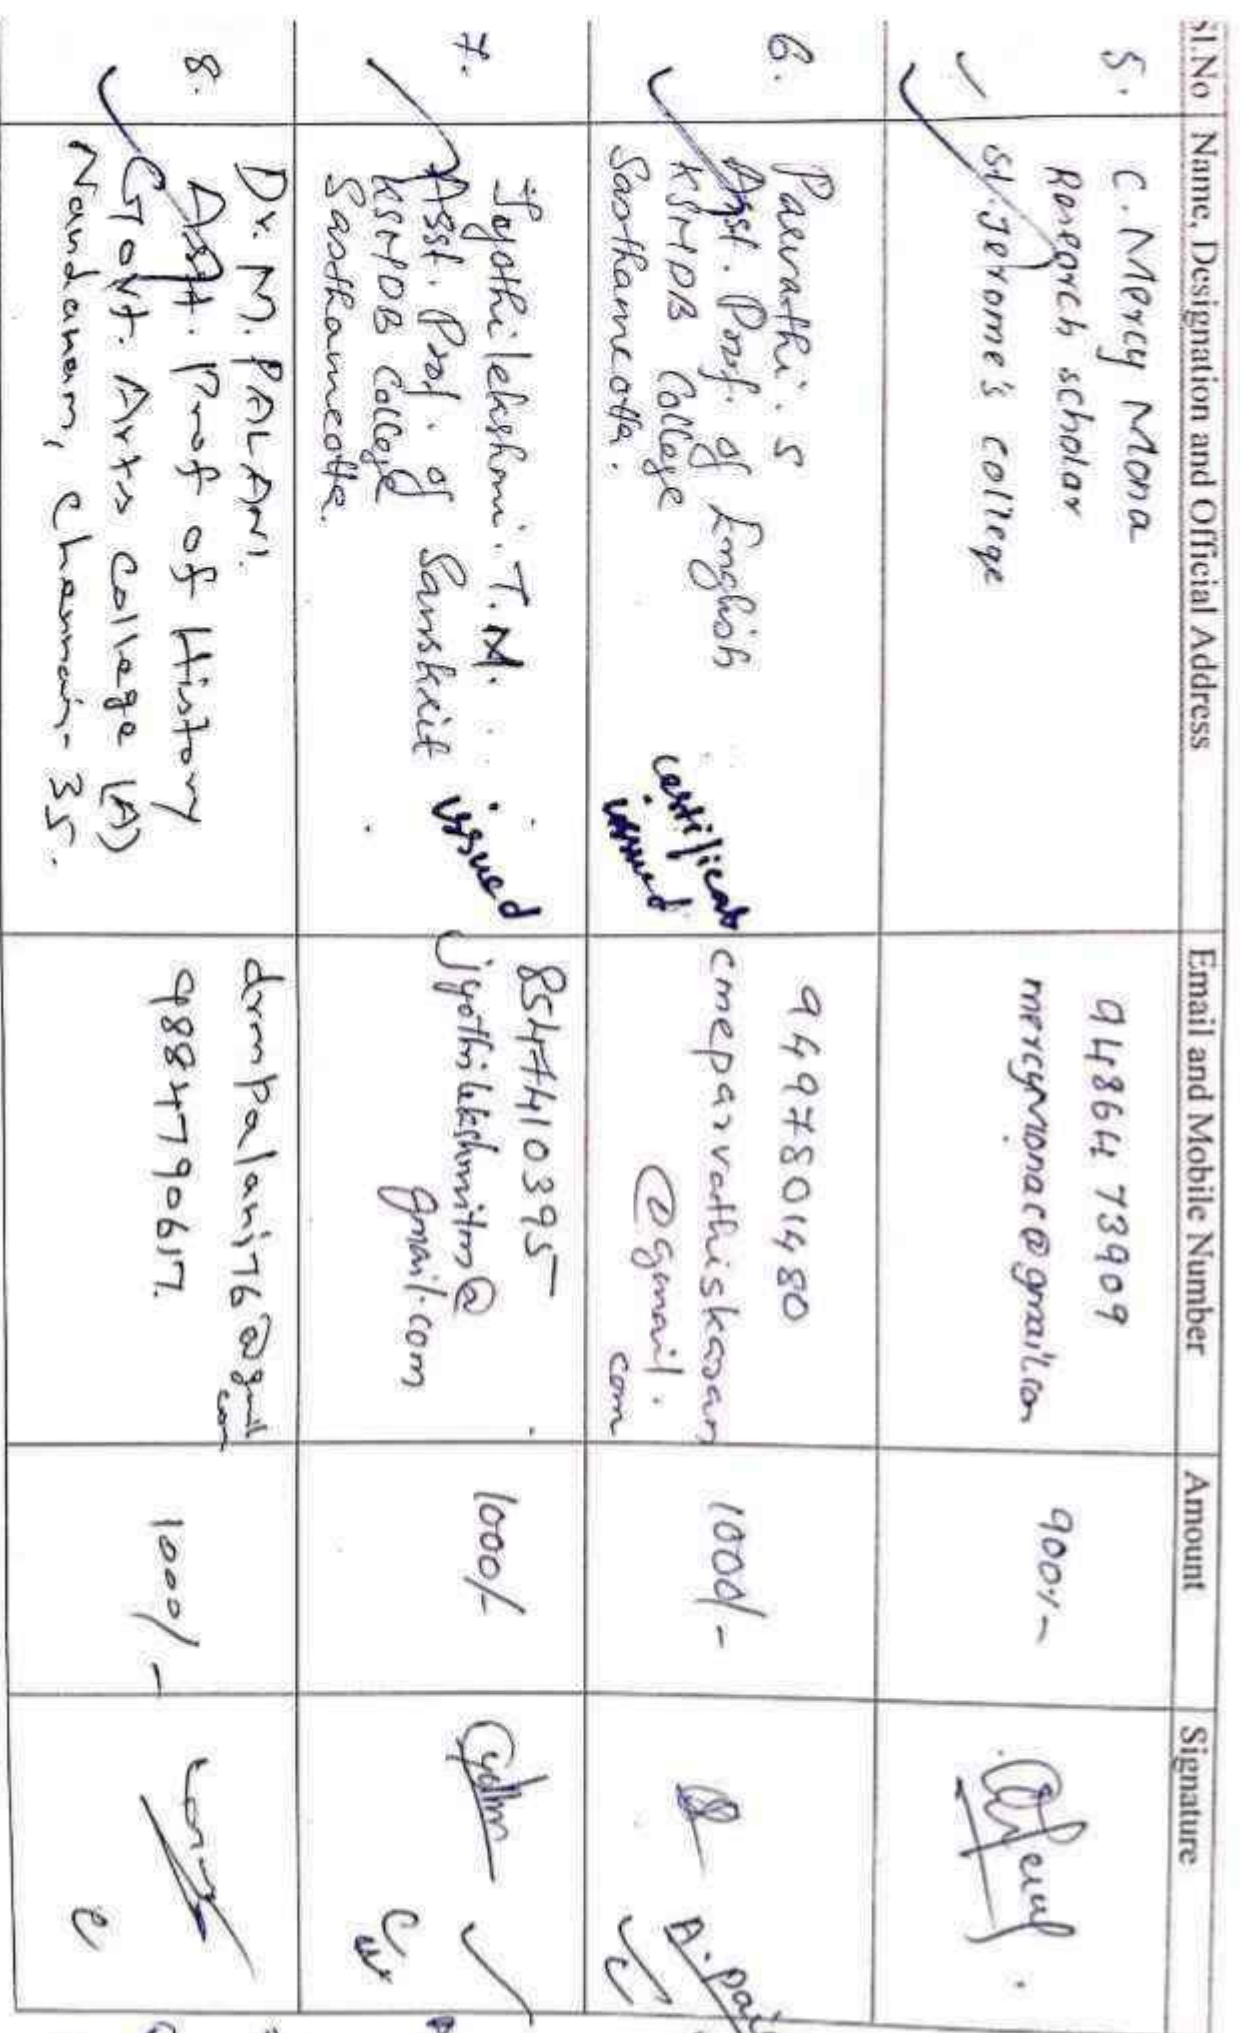 Sl.No Name, Designation and Official Address Email and Mobile Number Amount Signature
5. C. Mercy Mona
Research scholar
St. Jerome's college
94864 73909
mercymonac@gmail.com
900/-
6. Parvathi. S
Asst. Prof. of English
KSMDB College
Sasthamcotta.
certificate
issued
9497801480
cmeparvathiskaran
@gmail.
com
1000/-
7. Jyothilekshmi. T.M.
Asst. Prof. of Sanskrit
KSMDB College
Sasthamcotta.
issued
8547410395
jyothilekshmitm@
gmail.com
1000/-
Jyothi
8. Dr. M. PALANI.
Asst. Prof of History
Govt. Arts College (A)
Nandanam, Chennai - 35.
drmpalani76@gmail
com
9884790617.
1000/-